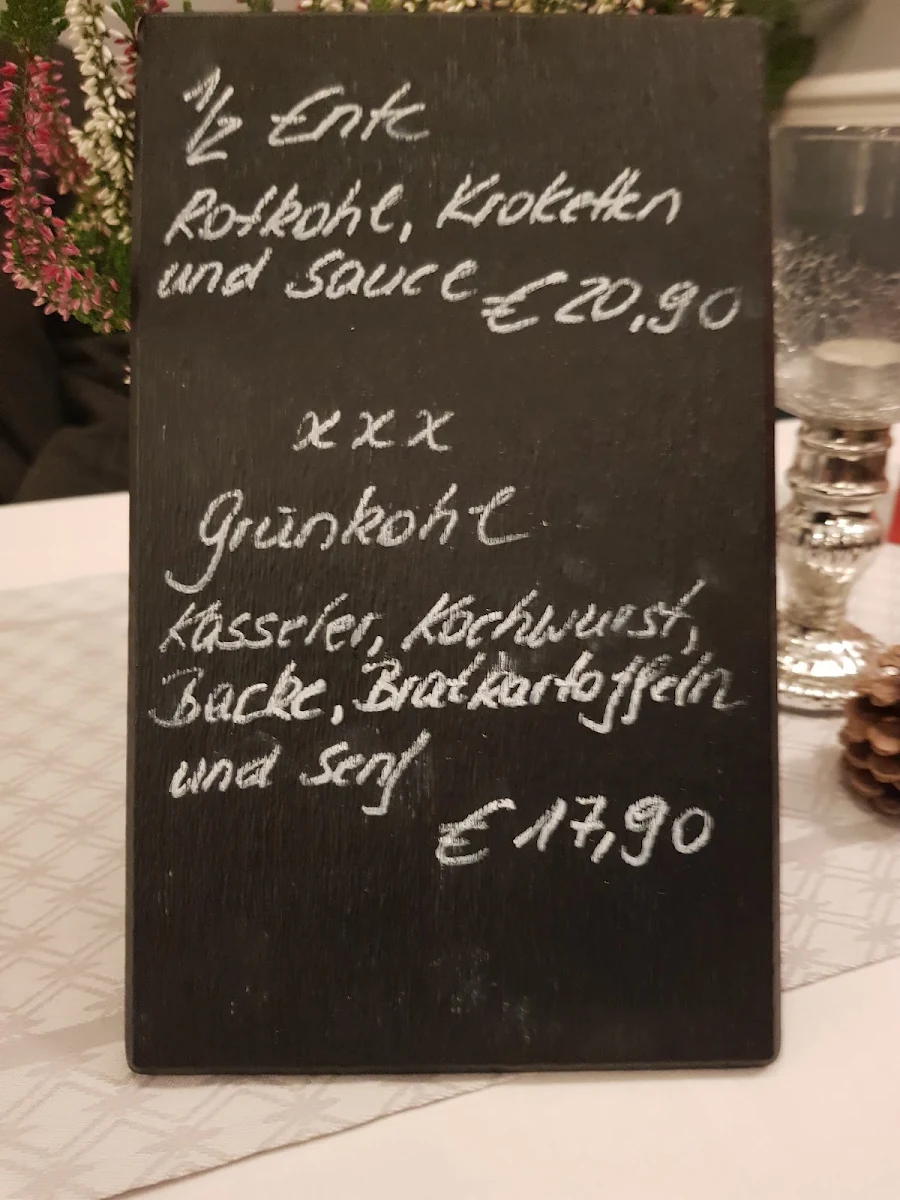 1/2 Ente
Rotkohl, Kroketten
und Sauce € 20,90
x x x
Grünkohl
Kasseler, Kochwurst,
Backe, Bratkartoffeln
und Senf
€ 17,90